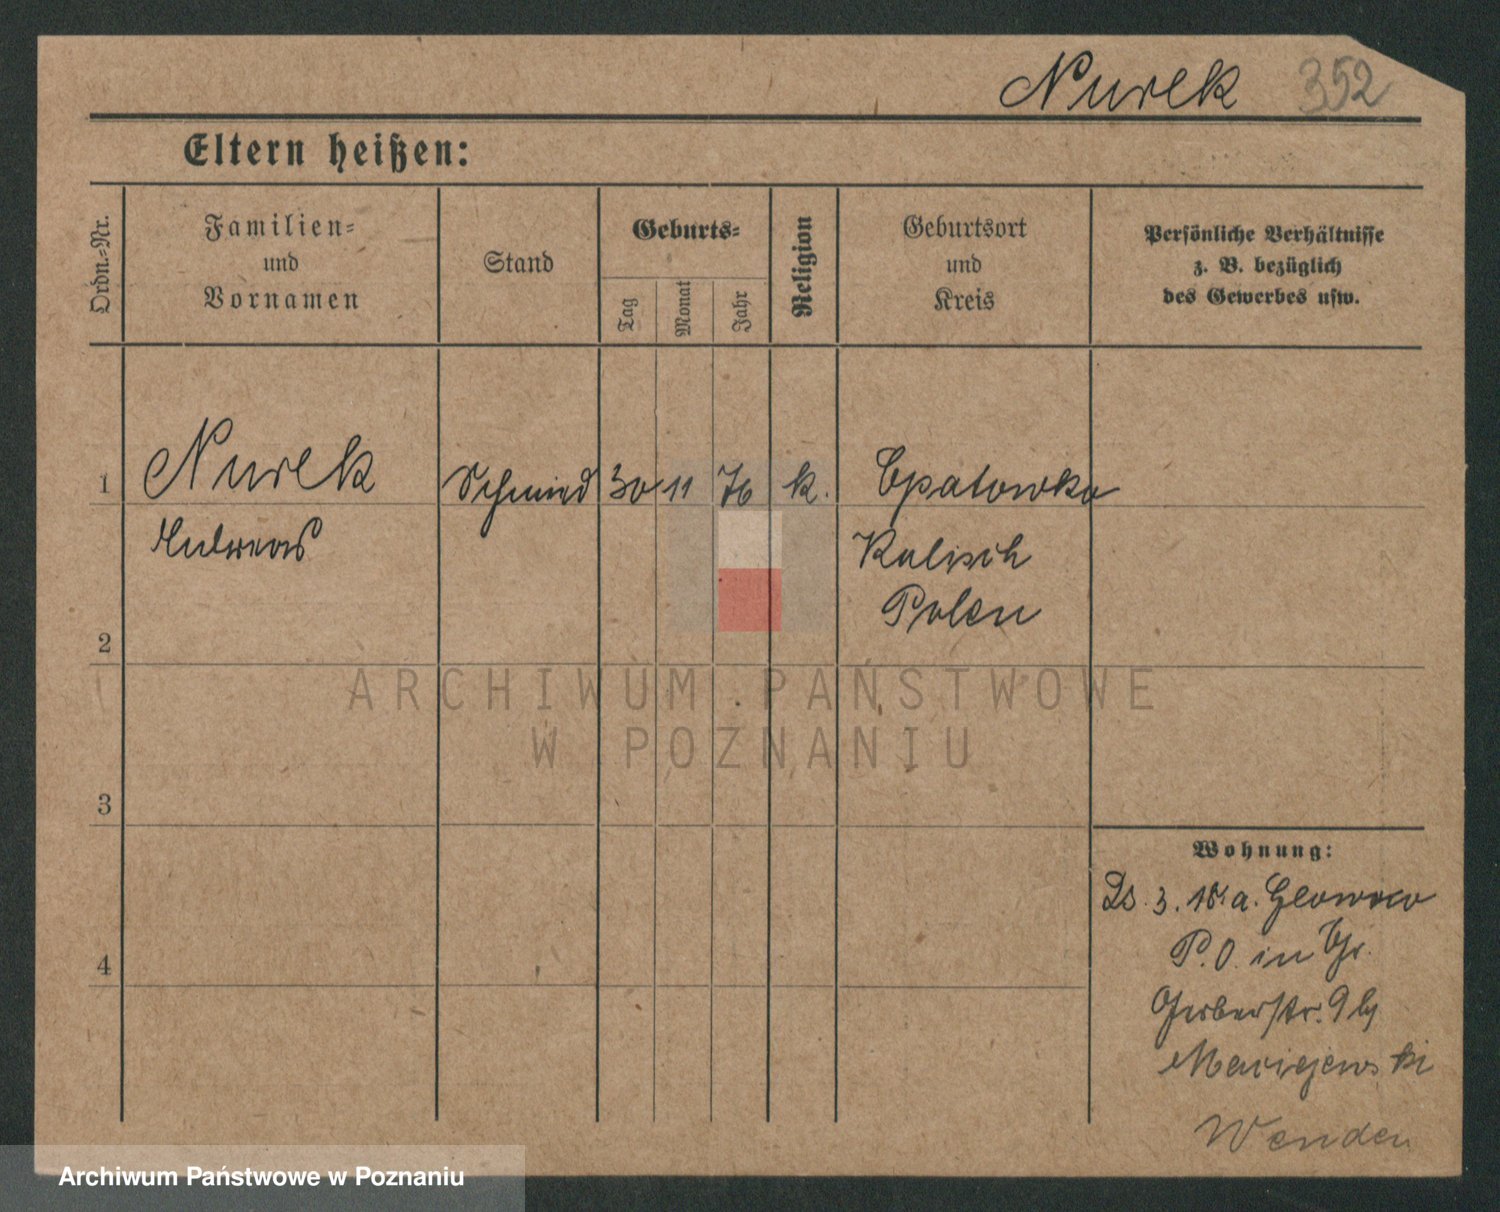 Nurek 352
Eltern heißen:
Ordn.-Nr.
Familien-
und
Vornamen
Stand
Geburts-
Tag
Monat
Jahr
Religion
Geburtsort
und
Kreis
Persönliche Verhältnisse
z. B. bezüglich
des Gewerbes usw.
1 Nurek Schmied 30 11 76 k. Opatowko
Andreas Kalisch
Polen
2
3
4
Wohnung:
3.
P.O. in
Gerberstr. 9 b/
Maciejewski
Wenden
ARCHIWUM PAŃSTWOWE
W POZNANIU
Archiwum Państwowe w Poznaniu